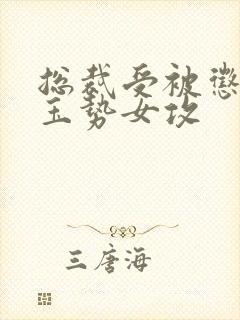 总裁受被惩
玉势女攻
三唐海